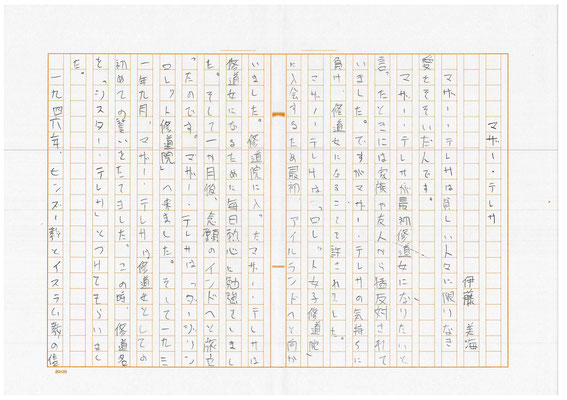 マザー・テレサ
伊藤 美海
マザー・テレサは貧しい人々に限りなき
愛をそそいだ人です。
マザー・テレサが最初修道女になりたいと
言ったときには家族や友人から猛反対されて
いました。ですがマザー・テレサの気持ちに
負け、修道女になることを許されました。
マザー・テレサは「ロレット女子修道院」
に入会するため最初、アイルランドへと向か
いました。修道院に入ったマザー・テレサは
修道女になるために毎日熱心に勉強していまし
た。そして一か月後、念願のインドへと旅立
ったのです。マザー・テレサは「ダージリン
ロレット修道院」へ来ました。そして一九三
一年九月、マザー・テレサは修道女としての
初めての誓いをたてました。この時、修道名
を「シスター・テレサ」とつけてもらいまし
た。
一九四六年、ヒンズー教とイスラム教の信
20×20